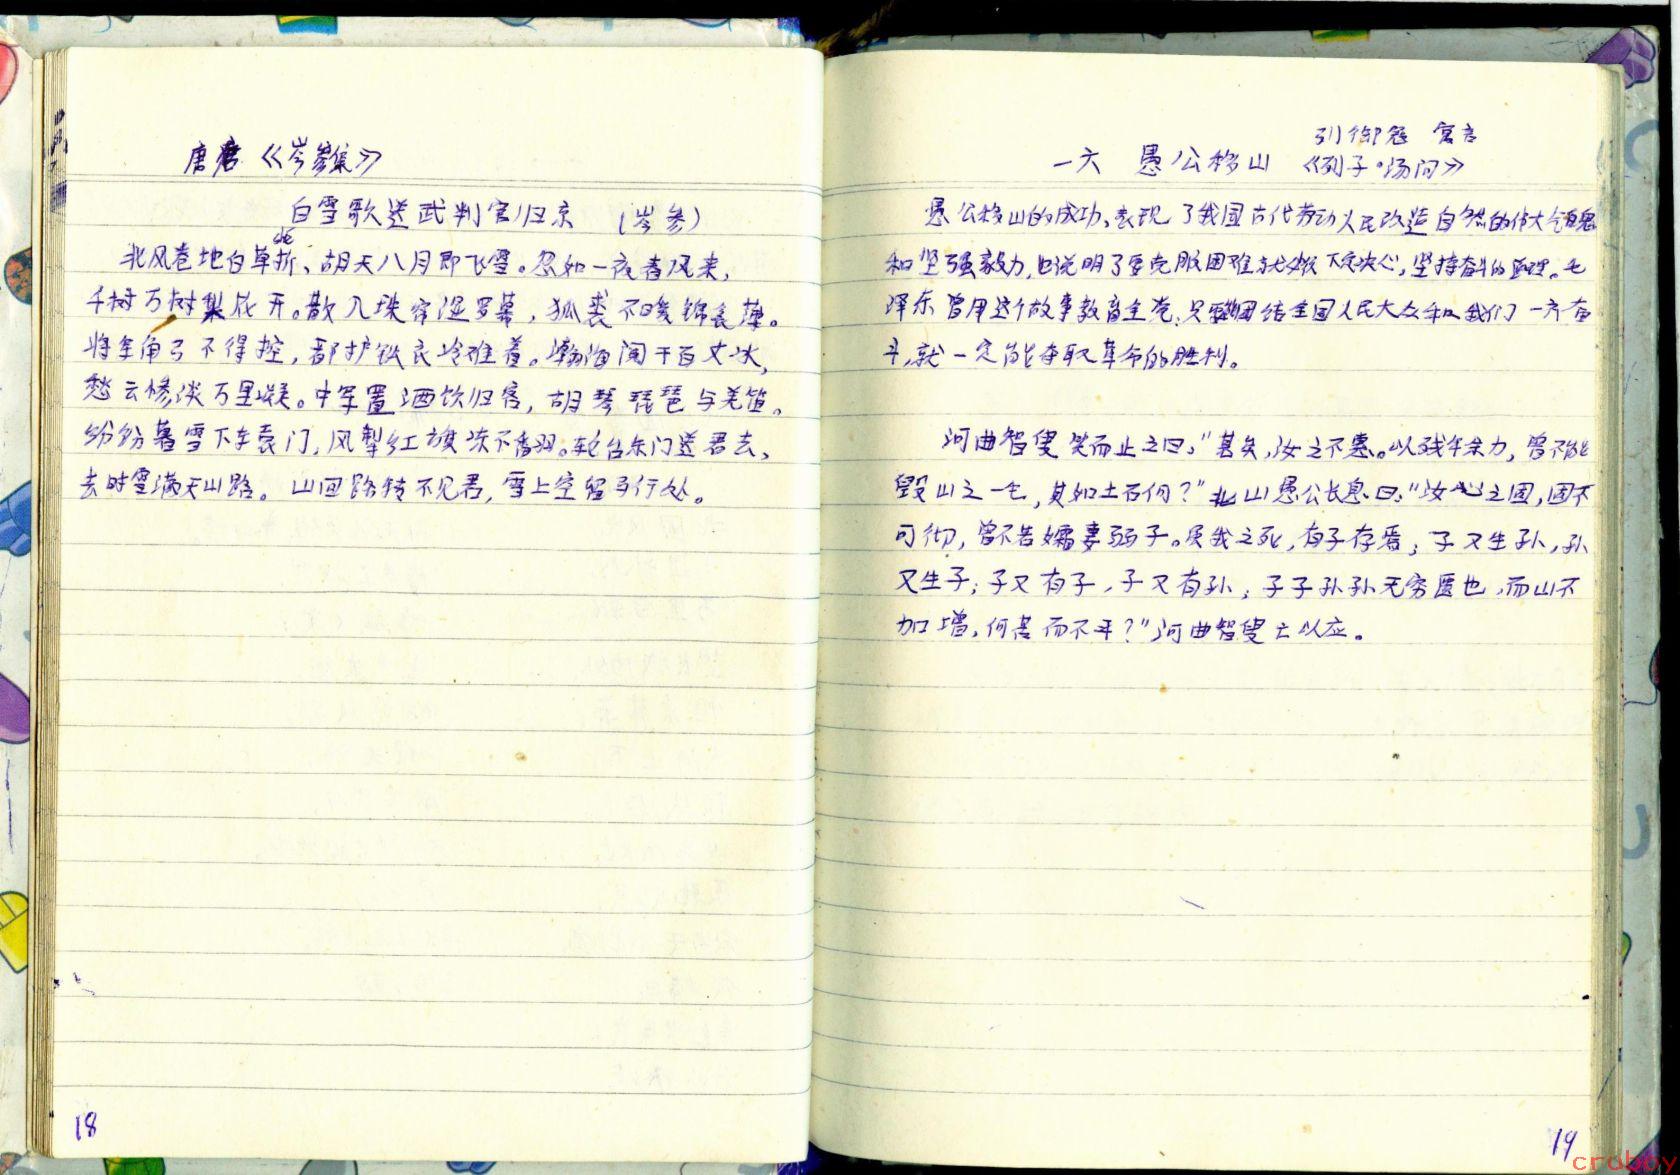 唐 《岑参集》
白雪歌送武判官归京 (岑参)
北风卷地白草折、胡天八月即飞雪。忽如一夜春风来，
千树万树梨花开。散入珠帘湿罗幕，狐裘不暖锦衾薄。
将军角弓不得控，都护铁衣冷难着。瀚海阑干百丈冰，
愁云惨淡万里凝。中军置酒饮归客，胡琴琵琶与羌笛。
纷纷暮雪下车袁门，风掣红旗冻不翻。轮台东门送君去，
去时雪满天山路。山回路转不见君，雪上空留马行处。
18
列御寇 寓言
一六 愚公移山 《列子·汤问》
愚公移山的成功，表现了我国古代劳动人民改造自然的伟大气魄
和坚强毅力，也说明了要克服困难就必须下定决心，坚持奋斗的道理。毛
泽东曾用这个故事教育全党：只要团结全国人民大众和我们一齐奋
斗，就一定能夺取革命的胜利。
河曲智叟笑而止之曰："甚矣，汝之不惠。以残年余力，曾不能
毁山之一毛，其如土石何？"北山愚公长息曰："汝心之固，固不
可彻，曾不若孀妻弱子。虽我之死，有子存焉；子又生孙，孙
又生子；子又有子，子又有孙；子子孙孙无穷匮也，而山不
加增，何苦而不平？"河曲智叟亡以应。
19
crabby